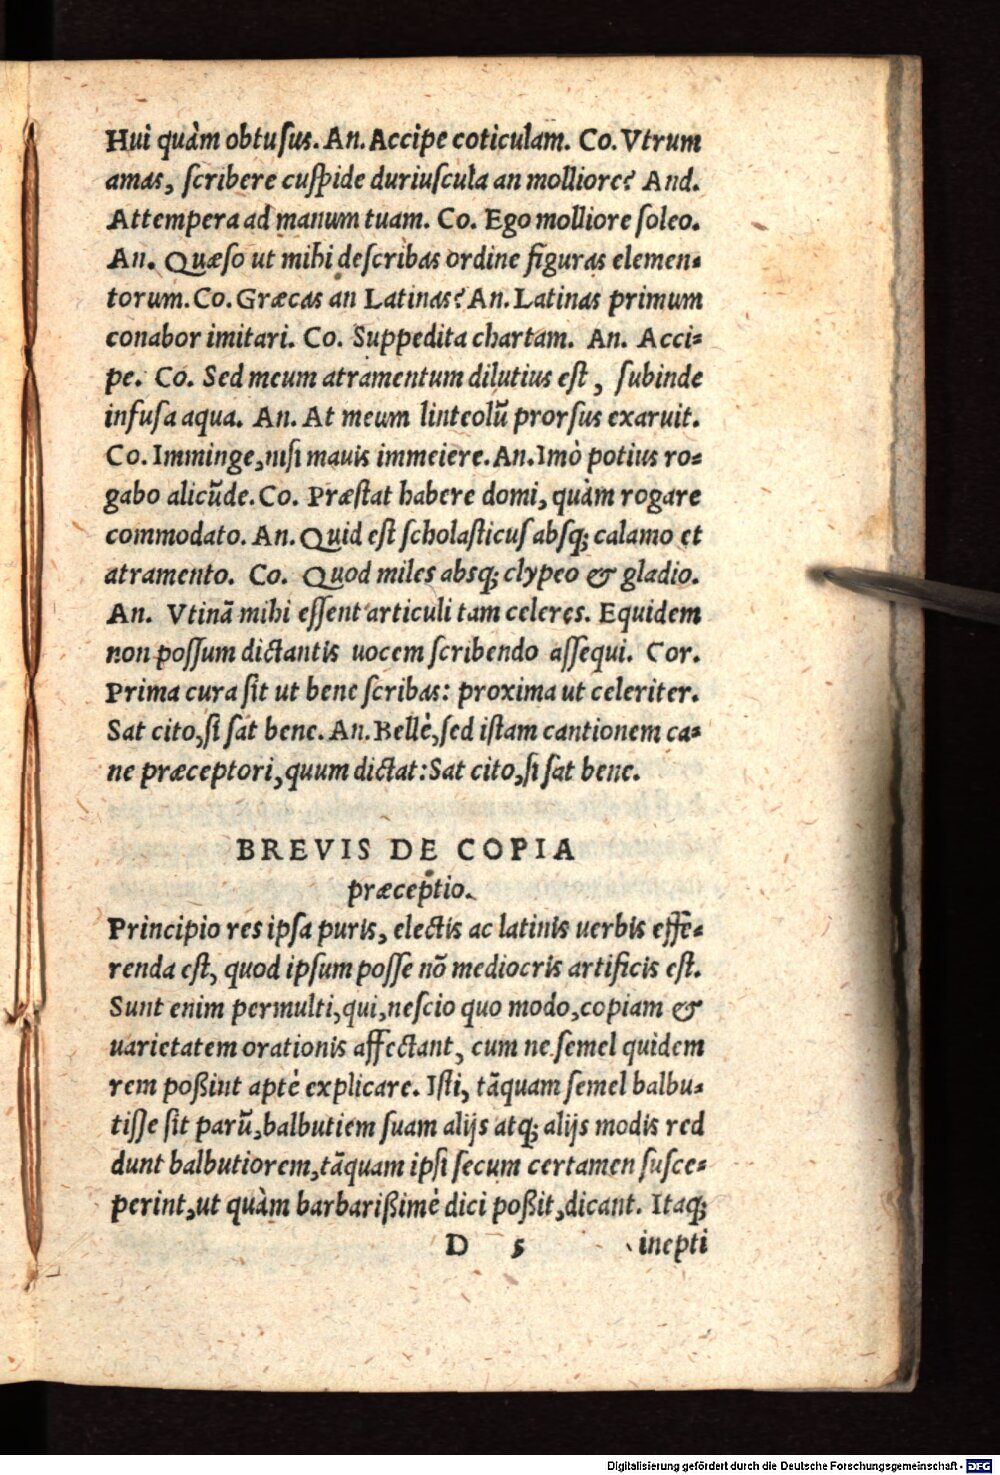 Hui quàm obtuſus. An. Accipe coticulam. Co. Vtrum
amas, ſcribere cuſpide duriuſcula an molliore? And.
Attempera ad manum tuam. Co. Ego molliore ſoleo.
An. Quæſo ut mihi deſcribas ordine figuras elemen-
torum. Co. Græcas an Latinas? An. Latinas primum
conabor imitari. Co. Suppedita chartam. An. Acci-
pe. Co. Sed meum atramentum dilutius eſt, ſubinde
infuſa aqua. An. At meum linteolũ prorſus exaruit.
Co. Imminge, niſi mauis immeiere. An. Imò potius ro-
gabo alicũde. Co. Præſtat habere domi, quàm rogare
commodato. An. Quid eſt ſcholaſticus abſq; calamo et
atramento. Co. Quod miles absq; clypeo & gladio.
An. Vtinã mihi eſſent articuli tam celeres. Equidem
non poſſum dictantis uocem ſcribendo aſſequi. Cor.
Prima cura ſit ut bene ſcribas: proxima ut celeriter.
Sat cito, ſi ſat bene. An. Bellè, ſed iſtam cantionem ca-
ne præceptori, quum dictat: Sat cito, ſi ſat bene.
BREVIS DE COPIA
præceptio.
Principio res ipſa puris, electis ac latinis uerbis effe-
renda eſt, quod ipſum poſſe nõ mediocris artificis eſt.
Sunt enim permulti, qui, neſcio quo modo, copiam &
uarietatem orationis affectant, cum ne ſemel quidem
rem poßint aptè explicare. Iſti, tãquam ſemel balbu-
tiſſe ſit parũ, balbutiem ſuam alijs atq; alijs modis red
dunt balbutiorem, tãquam ipſi ſecum certamen ſuſce-
perint, ut quàm barbarißimè dici poßit, dicant. Itaq;
D 5 inepti
Digitalisierung gefördert durch die Deutsche Forschungsgemeinschaft - DFG